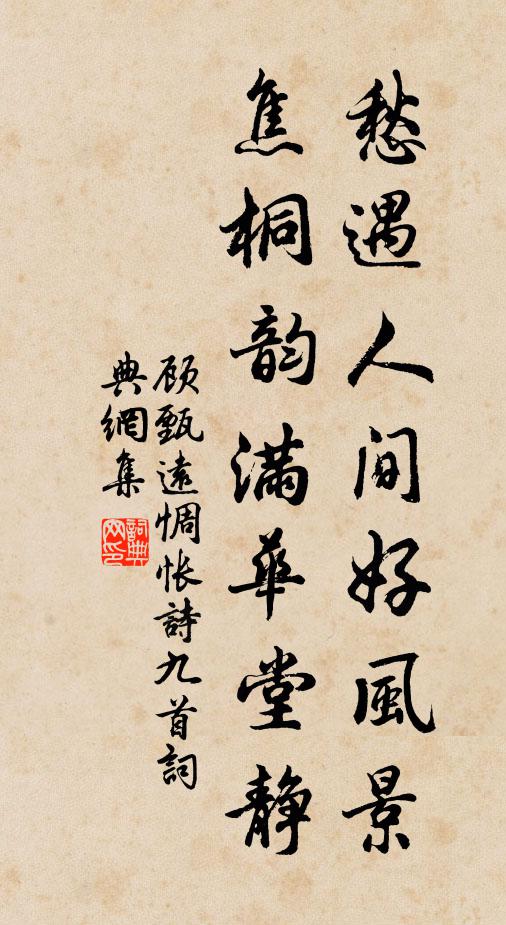 愁遇人间好風景
焦桐韵满华堂静
顾甄遠惆怅詩九首詞
典網集
詞典網印